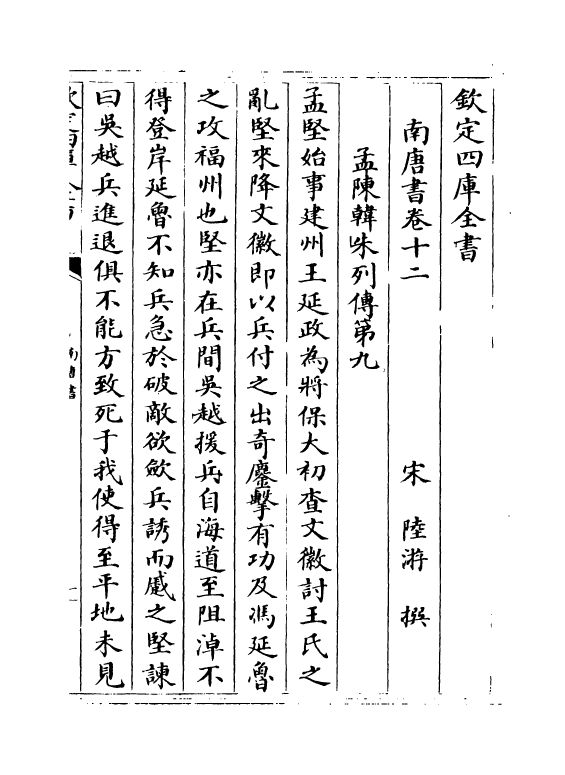 欽定四庫全書
南唐書卷十二
宋 陸游 撰
孟陳韓朱列傳第九
孟堅始事建州王延政為將保大初查文徽討王氏之
亂堅來降文徽即以兵付之出奇鏖擊有功及馮延魯
之攻福州也堅亦在兵間吳越援兵自海道至阻淖不
得登岸延魯不知兵急於破敵欲歛兵誘而蹙之堅諫
曰吳越兵進退俱不能方致死于我使得至平地未見
南唐書